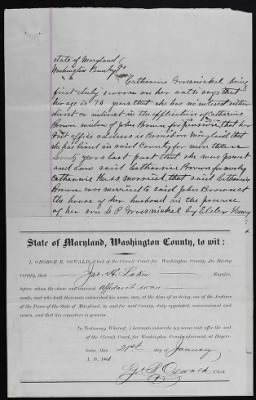 State of Maryland
Washington County
Catharine Grossnickel being
first duly sworn on her oath says that
her age is 74 years that she has no interest either
direct or indirect in the application of Catharine
Brown widow of John Brown for pension that her
Post office address is Maryland that
she has lived in said County for more than
years last past that she was present
and saw said Catharine Brown formerly
Catharine married that said Catharine
Brown was married to said John Brown at
the house of her husband in the presence
of her son Grossnickel by Elder Henry
State of Maryland, Washington County, to wit:
I, GEORGE B. OSWALD, Clerk of the Circuit Court for Washington County, Do Hereby
Certify, that Jno. H. Lakin Esquire,
before whom the above and annexed Affidavit was
made, and who hath thereunto subscribed his name, was, at the time of so doing, one of the Justices
of the Peace of the State of Maryland, in and for said County, duly appointed, commissioned and
sworn, and that his signature is genuine.
In Testimony Whereof, I hereunto subscribe my name and affix the seal
of the Circuit Court for Washington County aforesaid, at Hagers-
town, this 21st day of January
A. D. 188
Geo. B. Oswald